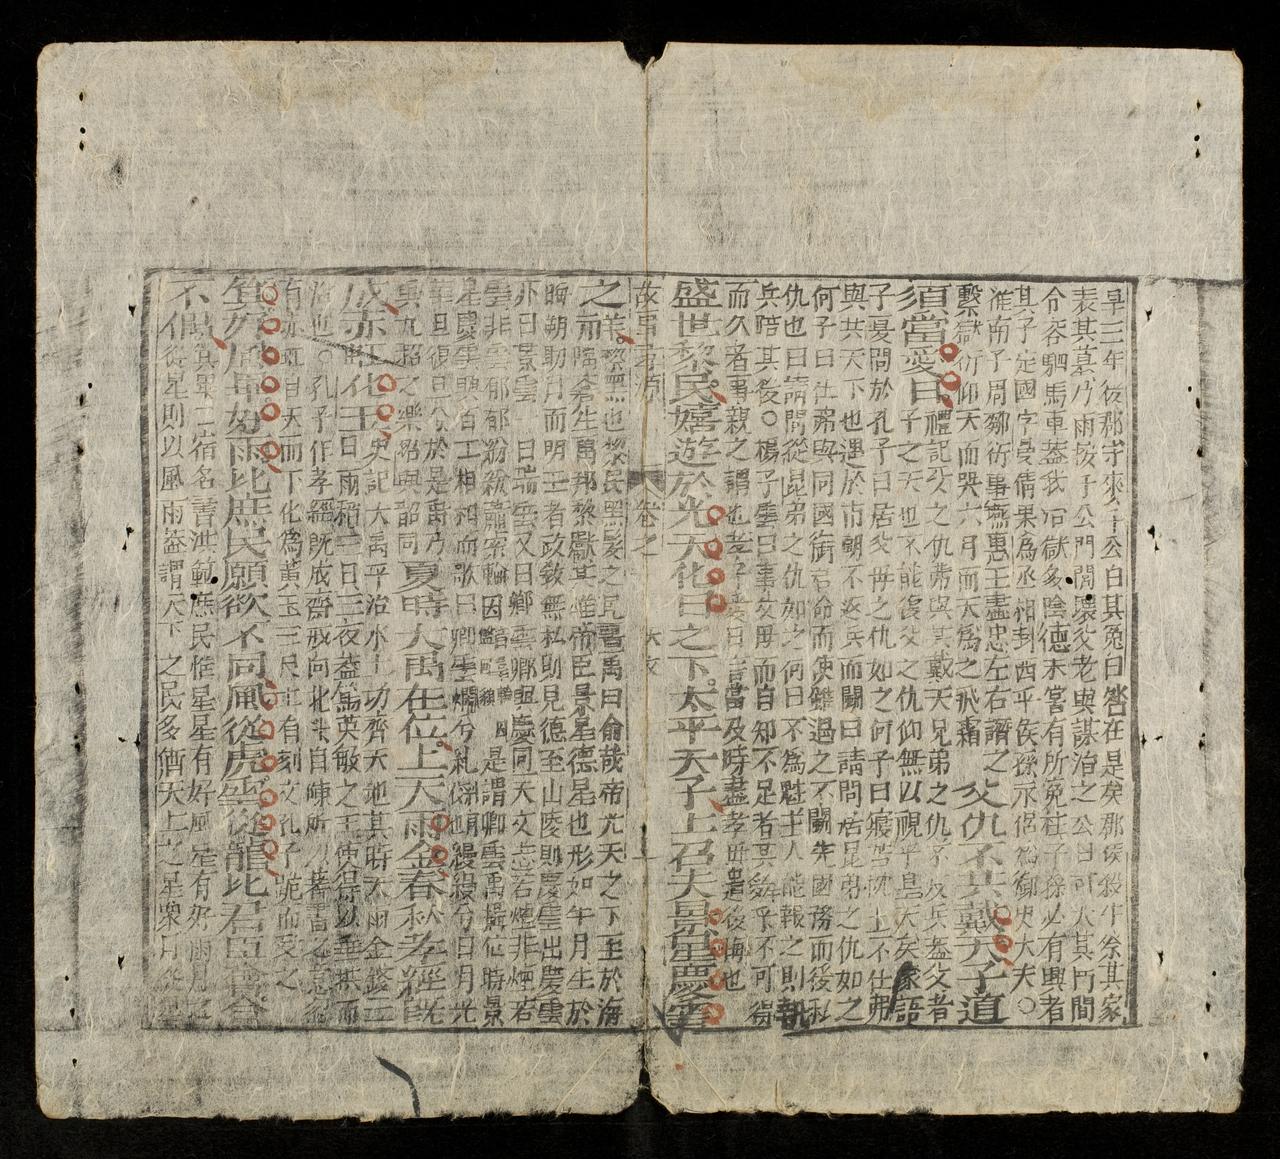 旱三年後郡守來于公白其冤曰咎在是矣郡侯殺牛祭其家
表其墓乃雨按于公門閭壞父老與謀治之公曰可大其門閭
令容駟馬車蓋我治獄多陰德未嘗有所冤枉子孫必有興者
其子定國字曼倩果爲丞相封西平侯孫永侶爲御史大夫○
淮南子周鄒衍事燕惠王盡忠左右譖之
繫獄衍仰天而哭六月而天爲之飛霜
父仇不共戴天子道
須當愛日
禮記父之仇弗與共戴天兄弟之仇不反兵蓋父者
子之天也不能復父之仇仰無以視乎皇天矣家語
子夏問於孔子曰居父母之仇如之何子曰寢苫枕土不仕弗
與共天下也遇於市朝不返兵而鬪曰請問居昆弟之仇如之
何子曰仕弗與同國銜君命而使雖遇之不鬪先國務而後私
仇也曰請問從昆弟之仇如之何曰不爲魁主人能報之則執
兵陪其後○楊子雲曰事父母而自知不足者其舜乎不可得
而久者事親之謂也孝子愛日言當及時盡孝毋貽後悔也
盛世黎民嬉遊於光天化日之下太平天子上召夫景星慶雲
故事尋源 卷之
之羊黎無也黎民黑髮之民書禹曰俞哉帝光天之下至於海
隅蒼生萬邦黎獻其惟帝臣景星德星也形如半月生於
晦朔助月而明王者政敎無私則見德至山陵則慶星出慶雲
亦曰景雲一曰瑞雲又曰卿雲卿與慶同天文志若煙非煙若
雲非雲郁郁紛紛蕭索輪囷是謂卿雲禹攝位時景
星慶雲興百工相和而歌曰卿雲爛兮糺縵縵兮日月光
華旦復旦兮於是禹乃
興九韶之樂
夏時大禹在位上天雨金春秋孝經旣
成赤虹化玉
史記大禹平治水土功齊天地其時天雨金鎔三
日雨稻三日三夜蓋
治也○孔子作孝經旣成齋戒向北斗
有赤虹自天而下化爲黃玉三尺上有刻文孔子跪而受之
箕好風畢好雨比庶民願欲不同風從虎雲從龍比君臣會合
不偶
箕畢二宿名書洪範庶民惟星星有好風星有好雨月之
從星則以風雨蓋謂天下之民多猶天上之星衆月從星